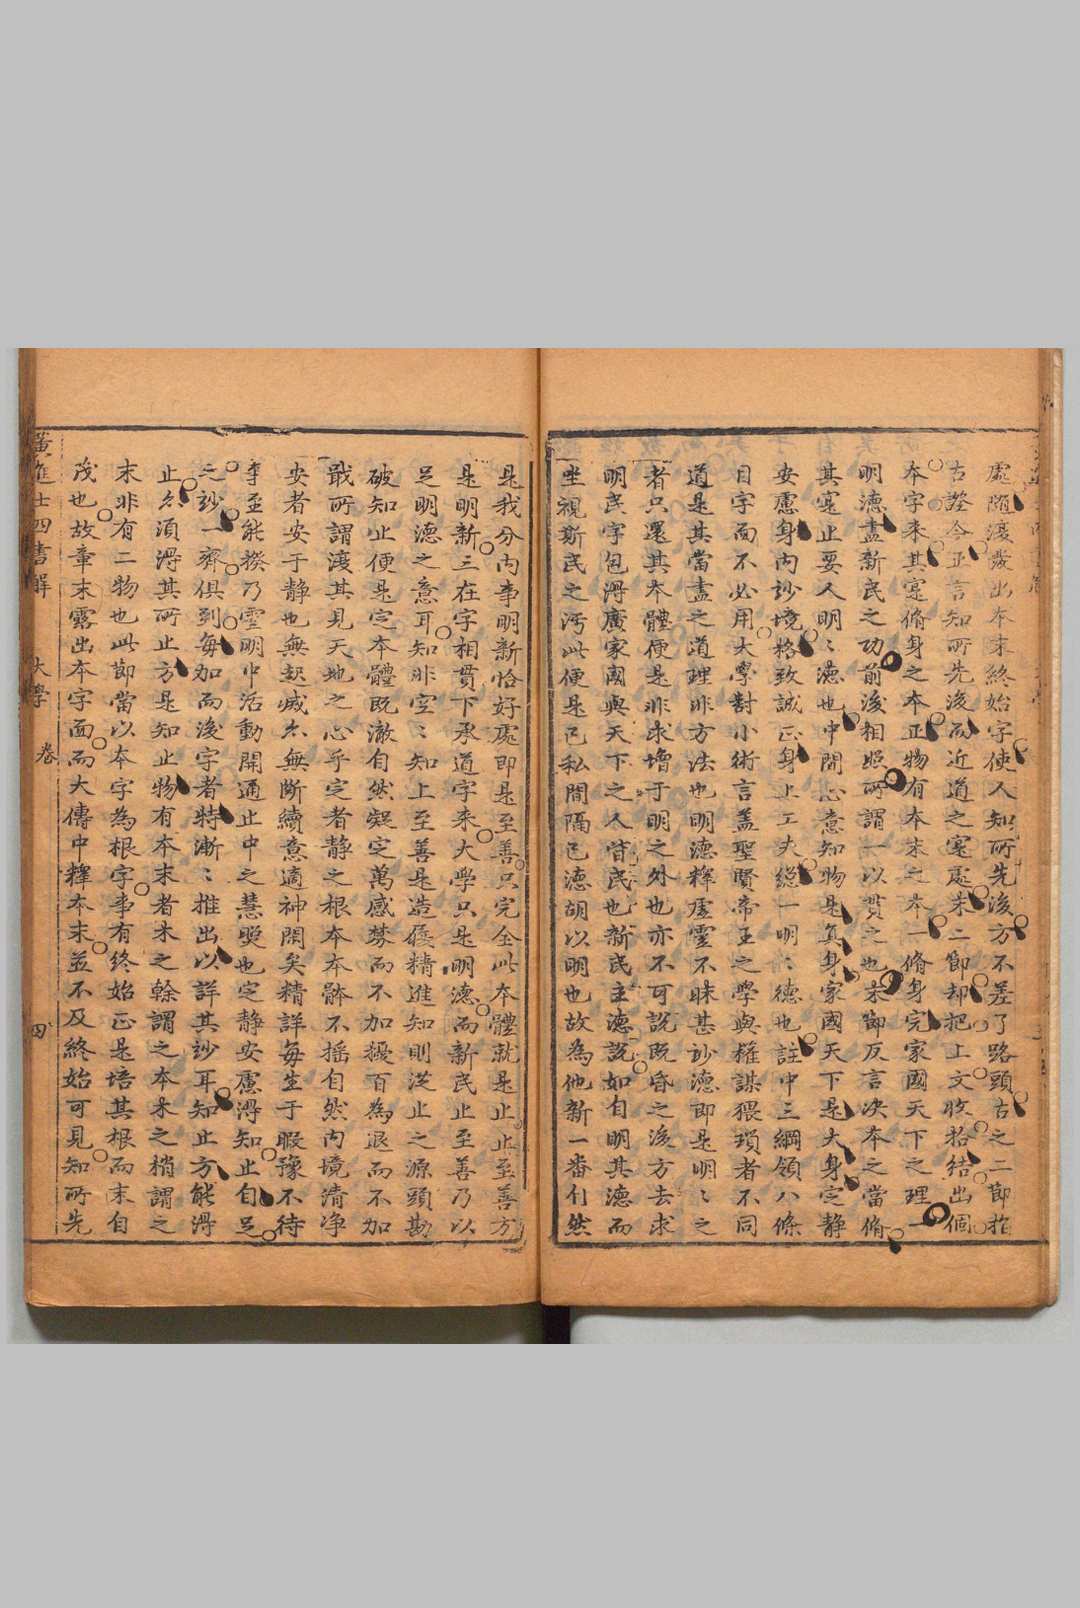 處隨後發出本末終始字使人知所先後方不差了路頭古之二節指
古證今正言知所先後而近道之寔處末二節却把上文收拾結出個
本字來其寔脩身之本正物有本末之本一脩身完家國天下之理一
明德盡新民之功前後相照所謂一以貫之也末節反言决本之當脩
其寔止要人明〻德也中間心意知物是真身家國天下是大身定靜
安慮身內玅境格致誠正身上工夫總一明〻德也註中三綱領八條
目字面不必用大學對小術言盖聖賢帝王之學與權謀猥瑣者不同
道是其當盡之道理非方法也明德釋虛靈不昧甚玅德即是明〻之
者只還其本體便是非求增于明之外也亦不可説既昏之後方去求
明民字包淂廣家國與天下之人皆民也新民主德説如自明其德而
坐視斯民之污此便是已私間隔已德胡以明也故為他新一番们然
是我分內事明新恰好處即是至善只完全此本體就是止止至善方
是明新三在字相貫下承道字來大學只是明德而新民止至善乃以
足明德之意耳知非空〻知上至善是造優精進知則從止之源頭勘
破知止便是定本體既澈自然凝定萬感勞而不加擾百為退而不加
戢所謂渡其見天地之心乎定者靜之根本本骵不摇自然內境清净
安者安于靜也無起滅亦無断續意適神閑矣精詳每生于暇豫不待
事至能揆乃靈明中活動開通止中之慧覺也定靜安慮淂知止自足
之玅一齊俱到每加而後字者特漸〻推出以詳其玅耳知止方能淂
止忽須淂其所止方是知止物有本末者木之榦謂之本木之梢謂之
末非有二物也此節當以本字為根字事有終始正是培其根而末自
茂也故章末露出本字面而大傳中釋本末並不及終始可見知所先
黄進士四書解 大學 卷 四